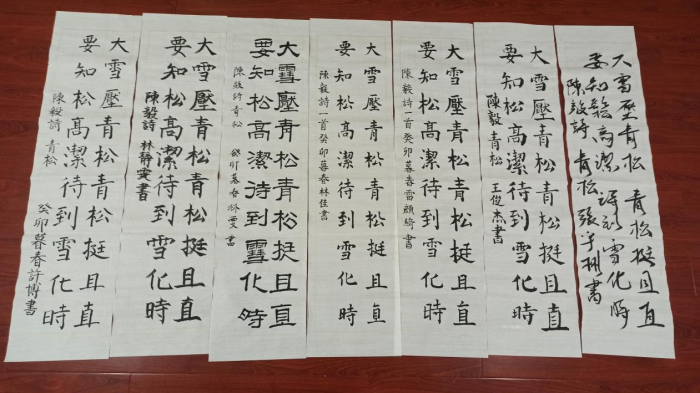 大雪壓青松青松挺且直
要知鬆高潔待到雪化時
陳毅詩青松張宇書
大雪壓青松青松挺且直
要知松高潔待到雪化時
陳毅青松 王俊杰書
大雪壓青松青松挺且直
要知松高潔待到雪化時
陳毅詩一首癸卯暮春雷顏書
大雪壓青松青松挺且直
要知松高潔待到雪化時
陳毅詩一首癸卯暮春林佳書
大雪壓青松青松挺且直
要知松高潔待到雪化時
陳毅詩青松 癸卯暮春林雯書
大雪壓青松青松挺且直
要知松高潔待到雪化時
陳毅詩 林靜雯書
大雪壓青松青松挺且直
要知松高潔待到雪化時
陳毅詩 青松 癸卯暮春許博書